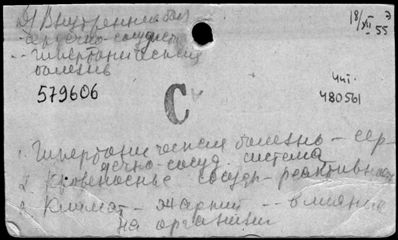 Д1 Внутренние бол
сердечно-сосудист
-- гипертоническая
болезнь
18/XII 55 э
579606
С
чит.
480561
1. Гипертоническая болезнь – сер-
дечно-сосуд. система
2. Кровеносные сосуды – реактивность
3. Климат – жаркий -- влияние
на организм